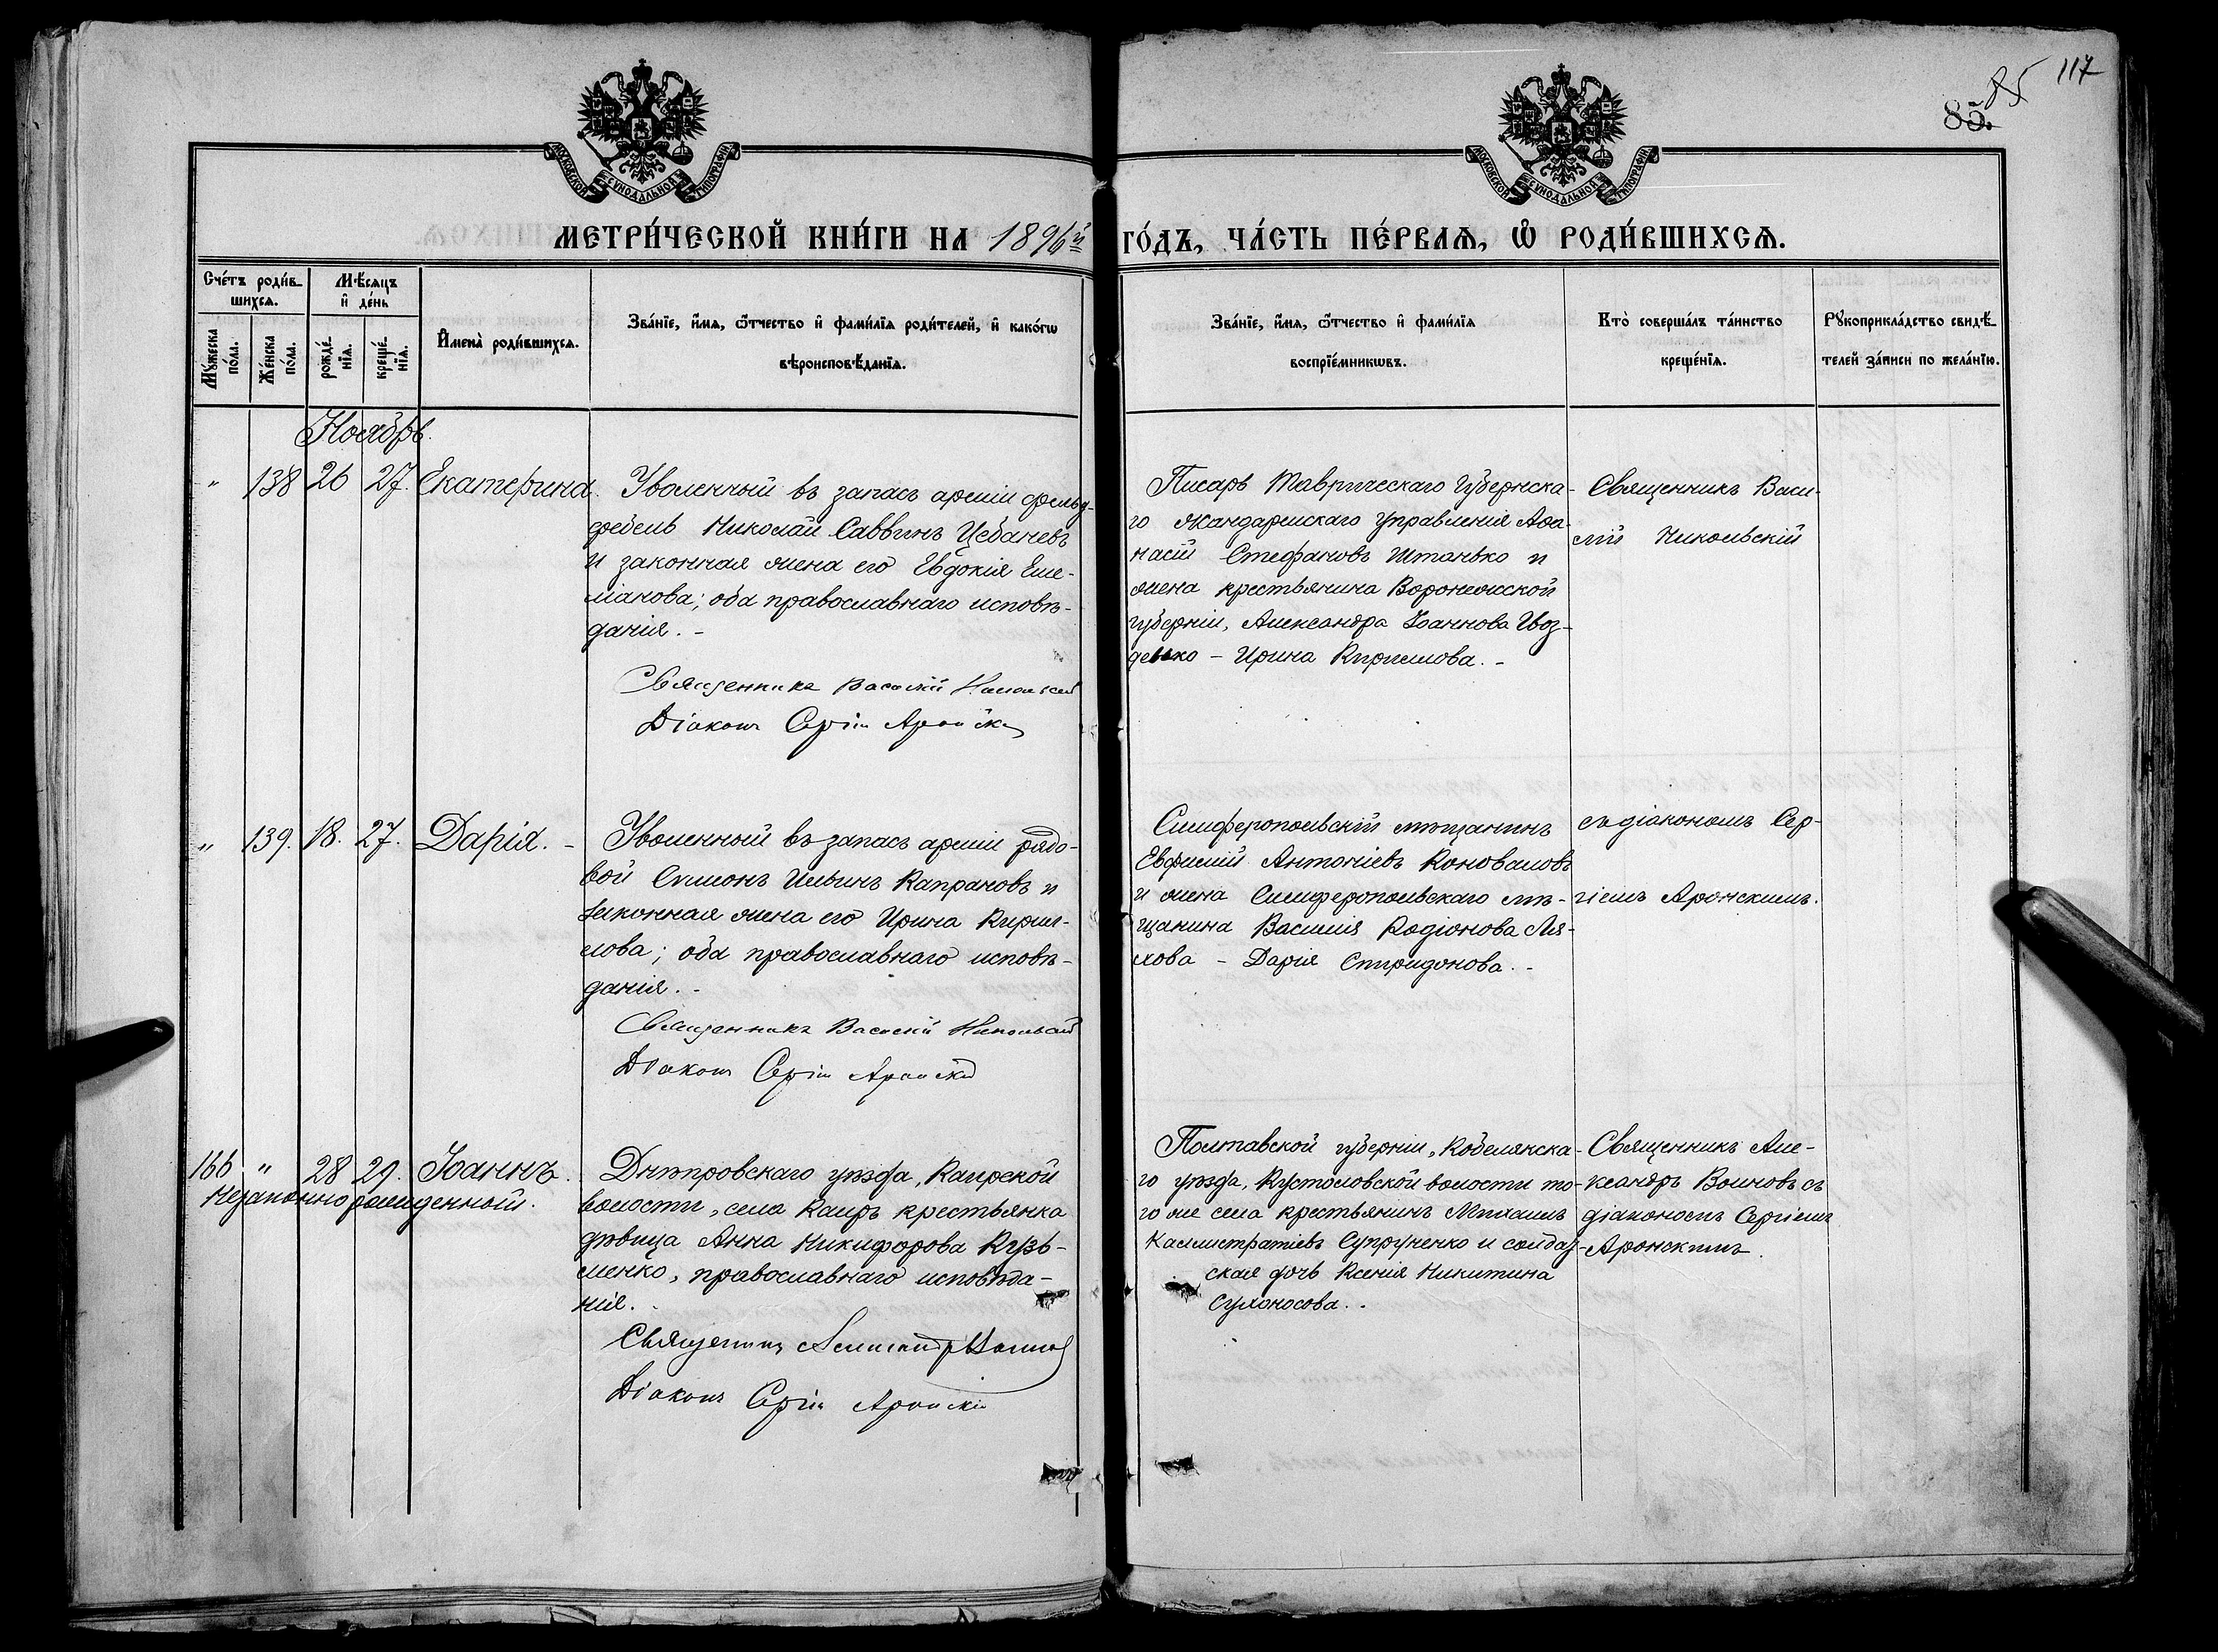 117
85
85.
МОСКОВСКОЙ СУНОДАЛЬНОЙ ТИПОГРАФІИ
МОСКОВСКОЙ СУНОДАЛЬНОЙ ТИПОГРАФІИ
МЕТРИ́ЧЕСКОЙ КНИ́ГИ НА 1896й ГО́ДЪ, ЧА́СТЬ ПЕ́РВАѦ, Ѡ РОДИ́ВШИХСѦ.
Сче́тъ роди́в-
шихсѧ.
Мꙋ́жеска
по́ла.
Же́нска
по́ла.
Мѣ́сѧцъ
и҆ де́нь
рожде́-
нїѧ.
креще́-
нїѧ.
И҆мена̀ роди́вшихсѧ.
Зва́нїе, и҆́мѧ, ѻ҆́тчество и҆ фами́лїѧ роди́телей, и҆ како́гѡ
вѣроисповѣ́данїѧ.
Зва́нїе, и҆́мѧ, ѻ҆́тчество и҆ фами́лїѧ
воспрїе́мникѡвъ.
Кто̀ соверша́лъ та́инство
креще́нїѧ.
Рꙋкоприкла́дство свидѣ́-
телей за́писи по жела́нїю.
Ноябрь.
" 138 26 27. Екатерина.
Уволенный въ запасъ арміи фельд-
фебель Николай Саввинъ Цебаневъ
и законная жена его Евдокія Еме-
ліанова; оба православнаго исповѣ-
данія. -
Священникъ Василій Никольскій
Діаконъ Сергій Аронскій
Писарь Таврическаго Губернска-
го Жандармскаго Управленія Аѳа-
насій Стефановъ Штанько и
жена крестьянина Воронежской
губерніи, Александра Іоаннова Гвоз-
денко - Ирина Кириллова. -
Священникъ Васи-
лій Никольскій
" 139. 18. 27. Дарія. -
Уволенный въ запасъ арміи рядо-
вой Симеонъ Ильинъ Капрановъ и
законная жена его Ирина Кирил-
лова; оба православнаго исповѣ-
данія. -
Священникъ Василій Никольскій
Діаконъ Сергій Аронскій
Симферопольскій мѣщанинъ
Евфимій Антоніевъ Коноваловъ
и жена Симферопольскаго мѣ-
щанина Василія Родіонова Ля-
хова - Дарія Спиридонова. -
съ діакономъ Сер-
гіемъ Аронскимъ.
166 " 28 29. Іоаннъ.
Незаконнорожденный.
Днѣпровскаго уѣзда, Каирской
волости, села Каиръ крестьянка
дѣвица Анна Никифорова Кузь-
менко, православнаго исповѣда-
нія.
Священникъ Александръ Воиновъ
Діаконъ Сергій Аронскій
Полтавской губерніи, Кобелякска-
го уѣзда, Кустоловской волости то-
го же села крестьянинъ Михаилъ
Каллистратіевъ Супруненко и солдат-
ская дочь Ксенія Никитина
Сухоносова. .
Священникъ Але-
ксандръ Воиновъ съ
діакономъ Сергіемъ
Аронскимъ.